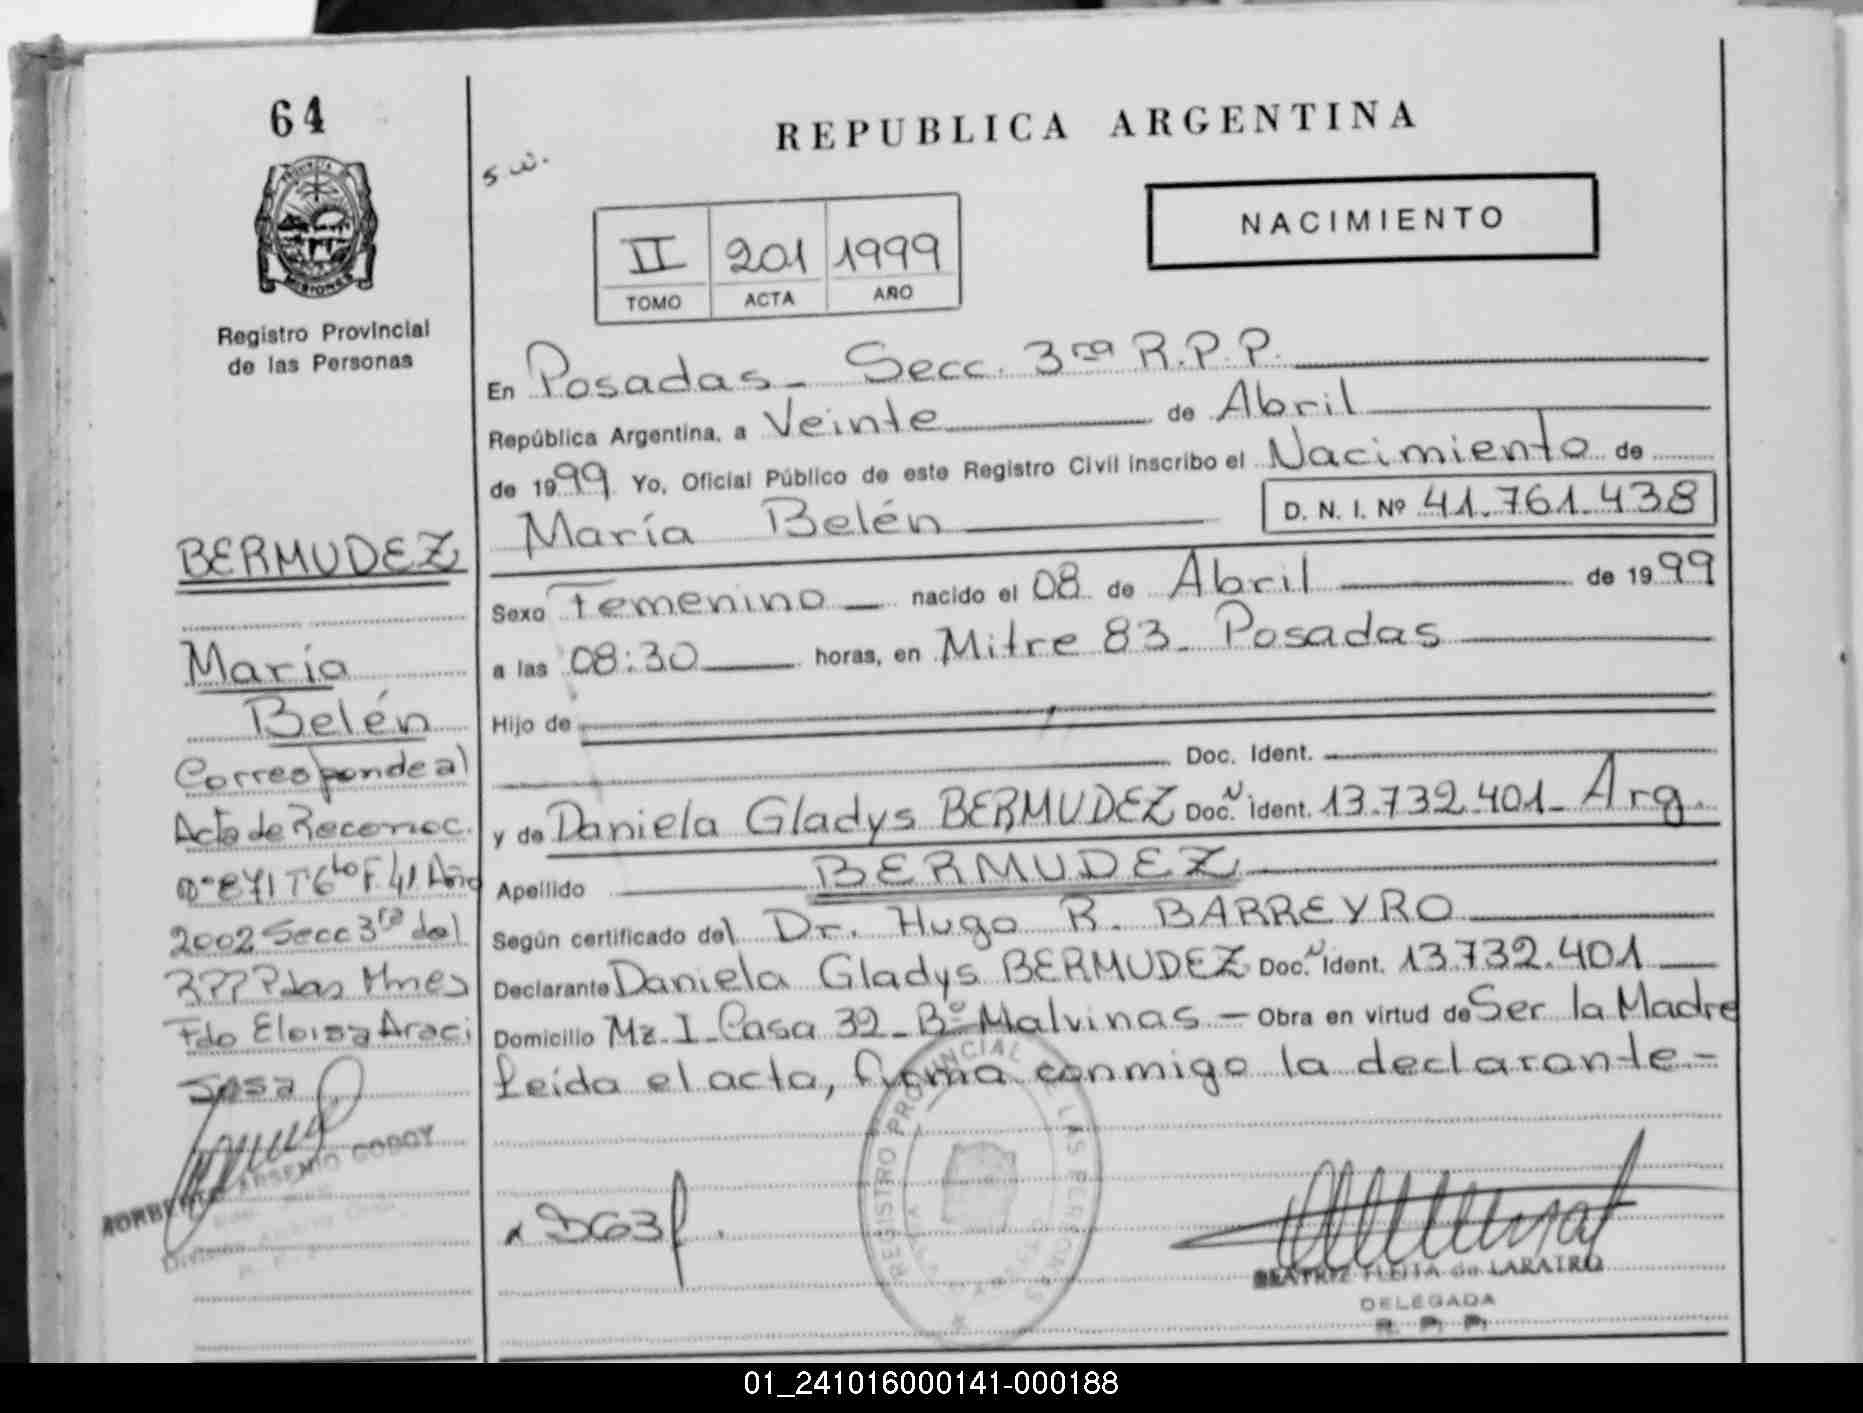 64
PROVINCIA DE
MISIONES
Registro Provincial
de las Personas
BERMUDEZ
María
Belén
Corresponde al
Acta de Reconoc.
Nº 871 T 6to F. 41 Año
2002 Secc 3ra del
R.P.P. Pdas Mnes
Fdo Eloisa Araci
Sosa
NORBERTO ARSENIO GODOY
s.w.
REPUBLICA ARGENTINA
NACIMIENTO
II 201 1999
TOMO ACTA AÑO
En Posadas - Secc. 3ra R.P.P.
República Argentina, a Veinte de Abril
de 1999 Yo, Oficial Público de este Registro Civil inscribo el Nacimiento de
María Belén D. N. I. Nº 41.761.438
Sexo Femenino nacido el 08 de Abril de 1999
a las 08:30 horas, en Mitre 83 - Posadas
Hijo de
Doc. Ident.
y de Daniela Gladys BERMUDEZ Doc. N Ident. 13.732.401 - Arg.
Apellido BERMUDEZ
Según certificado del Dr. Hugo R. BARREYRO
Declarante Daniela Gladys BERMUDEZ Doc. N Ident. 13.732.401
Domicilio Mz. I - Casa 32 - Bº Malvinas - Obra en virtud de Ser la Madre
Leída el acta, firma conmigo la declarante -
REGISTRO PROVINCIAL DE LAS PERSONAS
BEATRIZ FLEITA de LARATRO
DELEGADA
R. P. P.
01_241016000141-000188